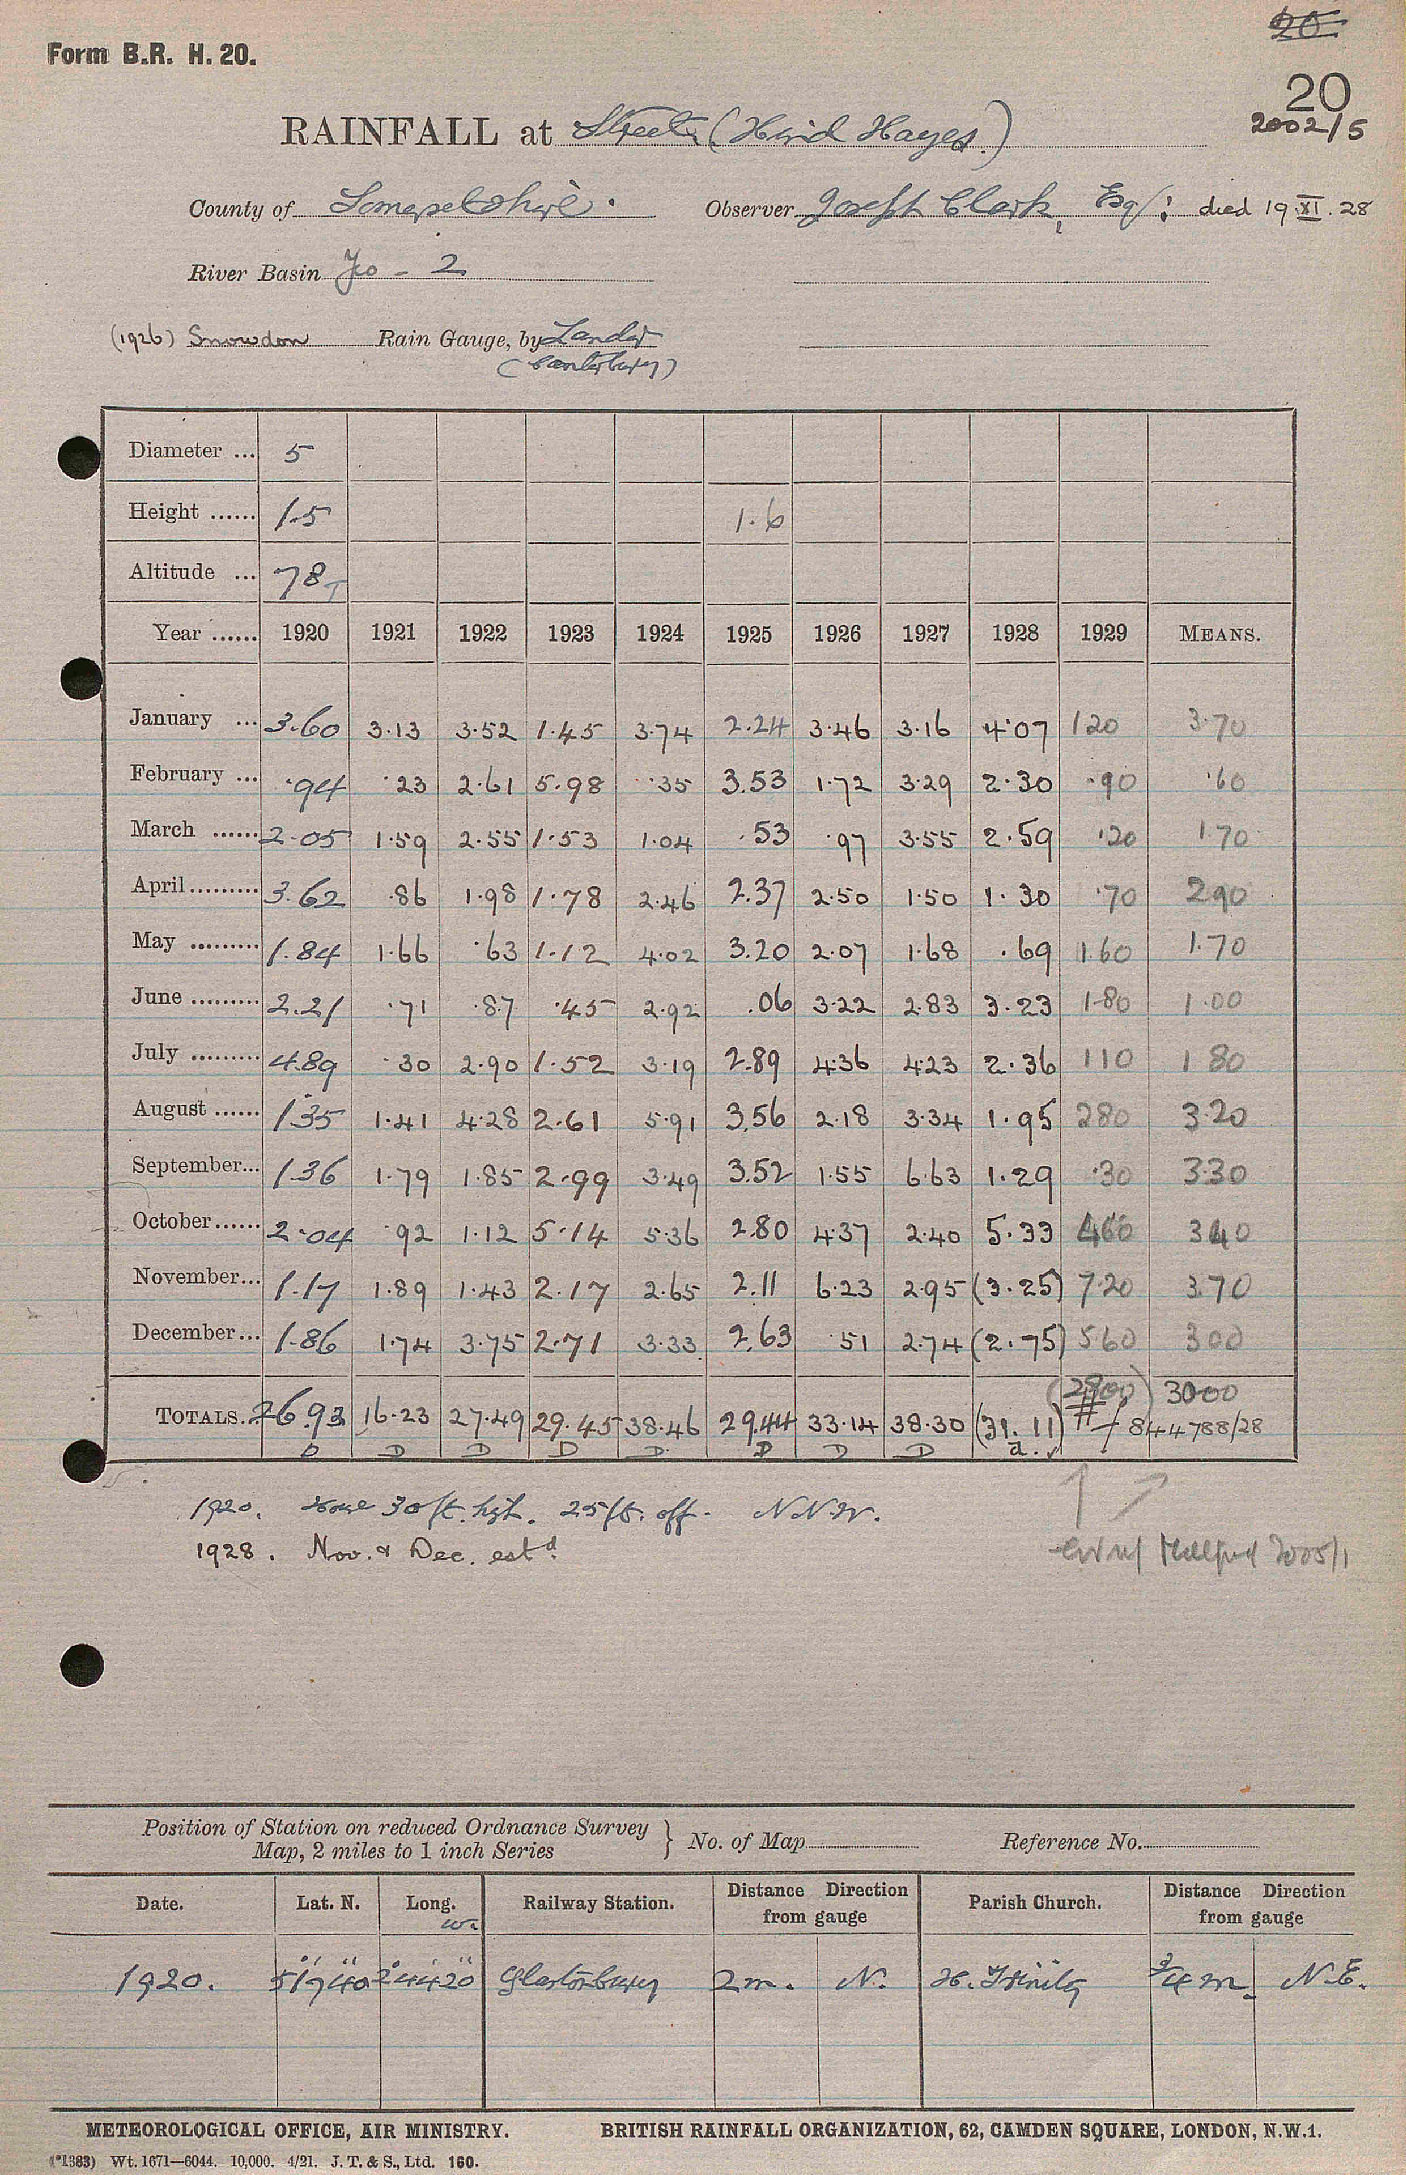 20
Form B.R. H. 20.
20
2002/5
RAINFALL at Street (Hind Hayes.)
County of Somersetshire. Observer Joseph Clark, Esq: died 19.XI.28
River Basin Yeo - 2
(1926) Snowdon Rain Gauge, by Lander
(Canterbury)
Diameter ... 5
Height ...... 1.5 1.6
Altitude ... 78 T
Year ...... 1920 1921 1922 1923 1924 1925 1926 1927 1928 1929 MEANS.
January ... 3.60 3.13 3.52 1.45 3.74 2.24 3.46 3.16 4.07 120 3.70
February ... .94 .23 2.61 5.98 .35 3.53 1.72 3.29 2.30 .90 .60
March ...... 2.05 1.59 2.55 1.53 1.04 .53 .97 3.55 2.59 .20 1.70
April ......... 3.62 .86 1.98 1.78 2.46 2.37 2.50 1.50 1.30 .70 290
May ......... 1.84 1.66 .63 1.12 4.02 3.20 2.07 1.68 .69 1.60 1.70
June ......... 2.21 .71 .87 .45 2.92 .06 3.22 2.83 3.23 1.80 1.00
July ......... 4.89 .30 2.90 1.52 3.19 2.89 4.36 4.23 2.36 110 1 80
August ...... 1.35 1.41 4.28 2.61 5.91 3.56 2.18 3.34 1.95 280 3.20
September... 1.36 1.79 1.85 2.99 3.49 3.52 1.55 6.63 1.29 .30 330
October...... 2.04 .92 1.12 5.14 5.36 2.80 4.37 2.40 5.33 460 340
November... 1.17 1.89 1.43 2.17 2.65 2.11 6.23 2.95 (3.25) 7.20 3.70
December... 1.86 1.74 3.75 2.71 3.33 2.63 .51 2.74 (2.75) 560 300
(2800) 3000
TOTALS. 26.93 16.23 27.49 29.45 38.46 29.44 33.14 38.30 (31.11) # / 844788/28
D D D D D D D D a. ✓
1920. House 30 ft. hgh. 25 ft. off. N N.W.
1928. Nov. & Dec. estd.
2005/1
Position of Station on reduced Ordnance Survey
Map, 2 miles to 1 inch Series } No. of Map Reference No.
Date. Lat. N. Long. W. Railway Station. Distance Direction from gauge Parish Church. Distance Direction from gauge
1920. 51° 7' 40" 2° 44' 20" Glastonbury 2 m. N. H. Trinity 3/4 m. N.E.
METEOROLOGICAL OFFICE, AIR MINISTRY. BRITISH RAINFALL ORGANIZATION, 62, CAMDEN SQUARE, LONDON, N.W.1.
(*1383) Wt. 1671—6044. 10,000. 4/21. J. T. & S., Ltd. 160.